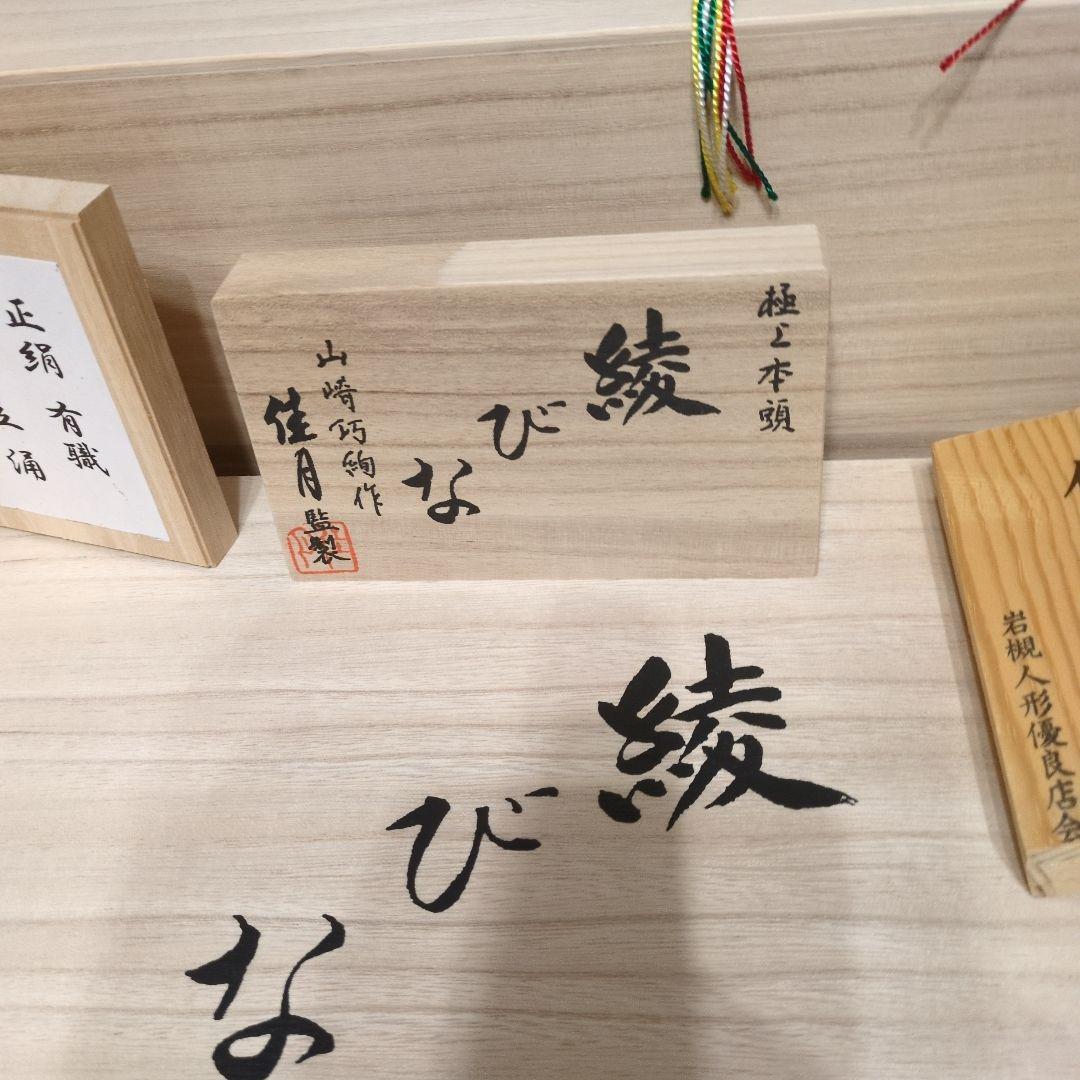 極上本頭
綾
び
な
山崎巧絢作
佳月監製
正絹
有職
涌
岩槻人形優良店会
綾
び
な